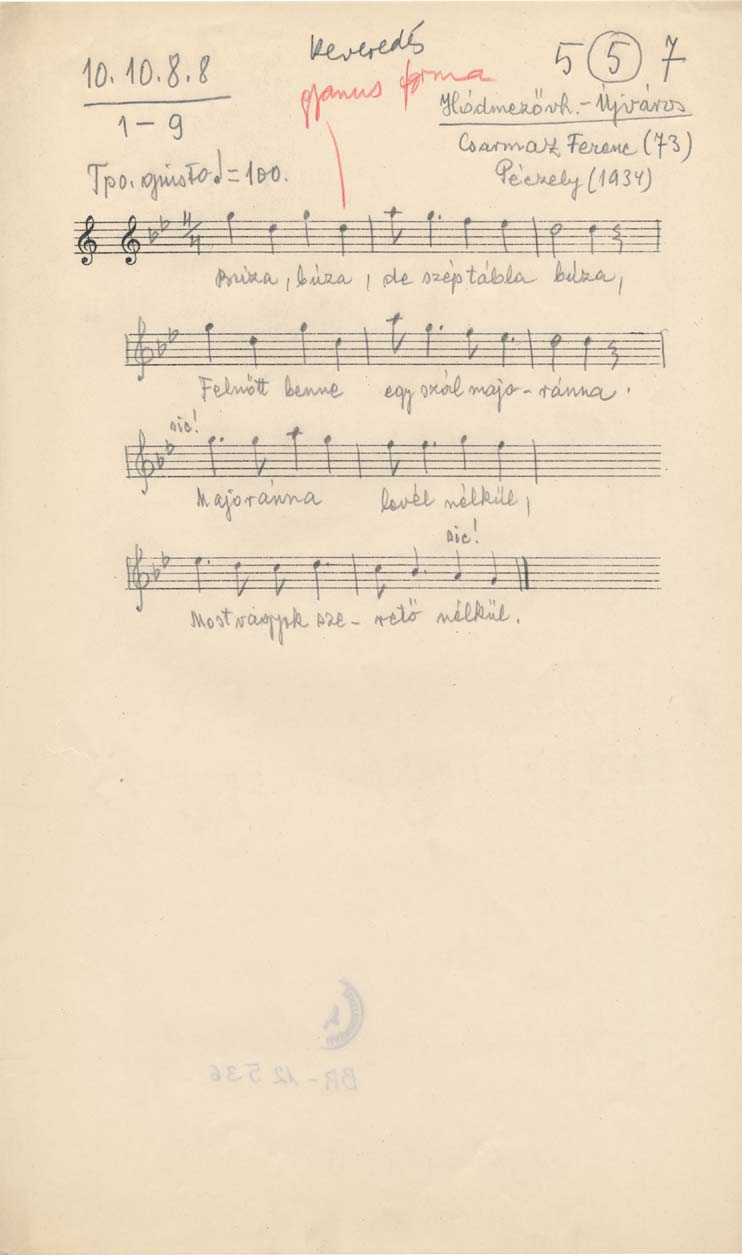 10. 10. 8. 8
1 - 9
Tpo. giusto ♩ = 100.
Keveredés
Janus forma
5 5 7
Hódmezővh. - Újváros
Csarmaz Ferenc (73)
Péczely (1934)
4/4
Búza, búza, de szép tábla búza,
Felnőtt benne egy szál majo-ránna.
sic!
Majoránna levél nélkül,
sic!
Most vagyok sze-rető nélkül.
BR-12536